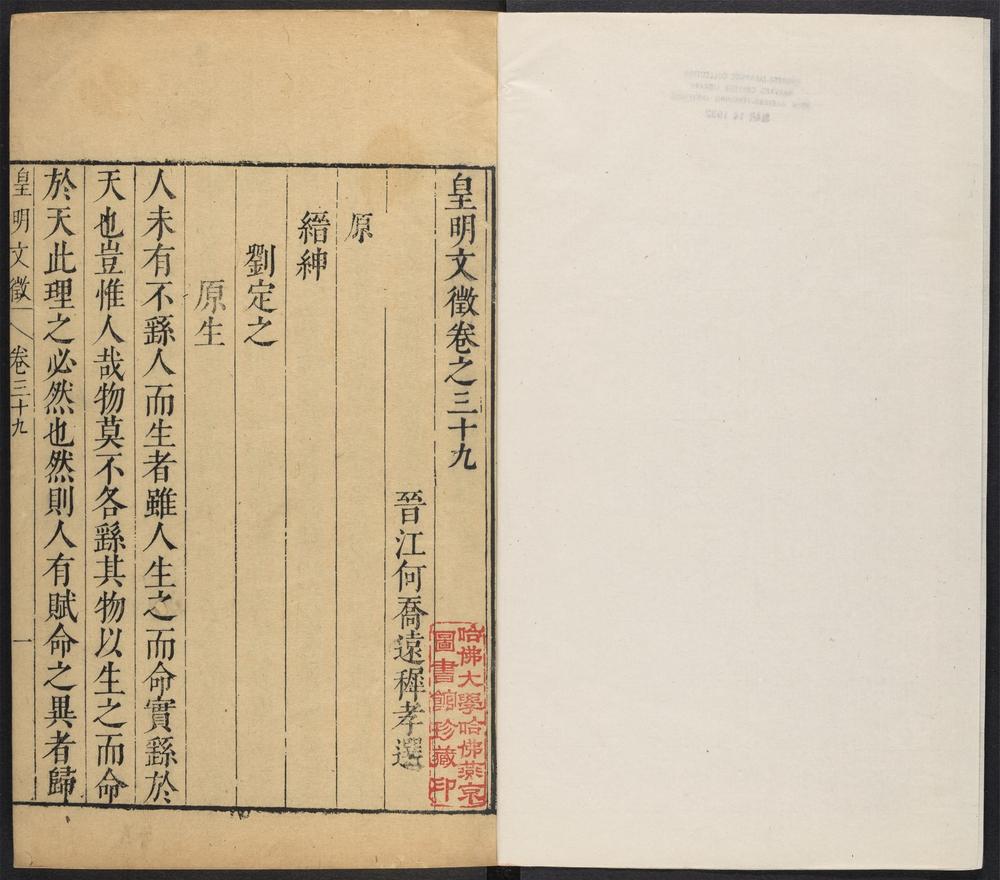 皇明文徵卷之三十九
晉江何喬遠穉孝選
原
縉紳
劉定之
原生
人未有不繇人而生者雖人生之而命實繇於
天也豈惟人哉物莫不各繇其物以生之而命
於天此理之必然也然則人有賦命之異者歸
皇明文徵 卷三十九 一
哈佛大學哈佛燕京
圖書館珍藏印
MAR 14 1932